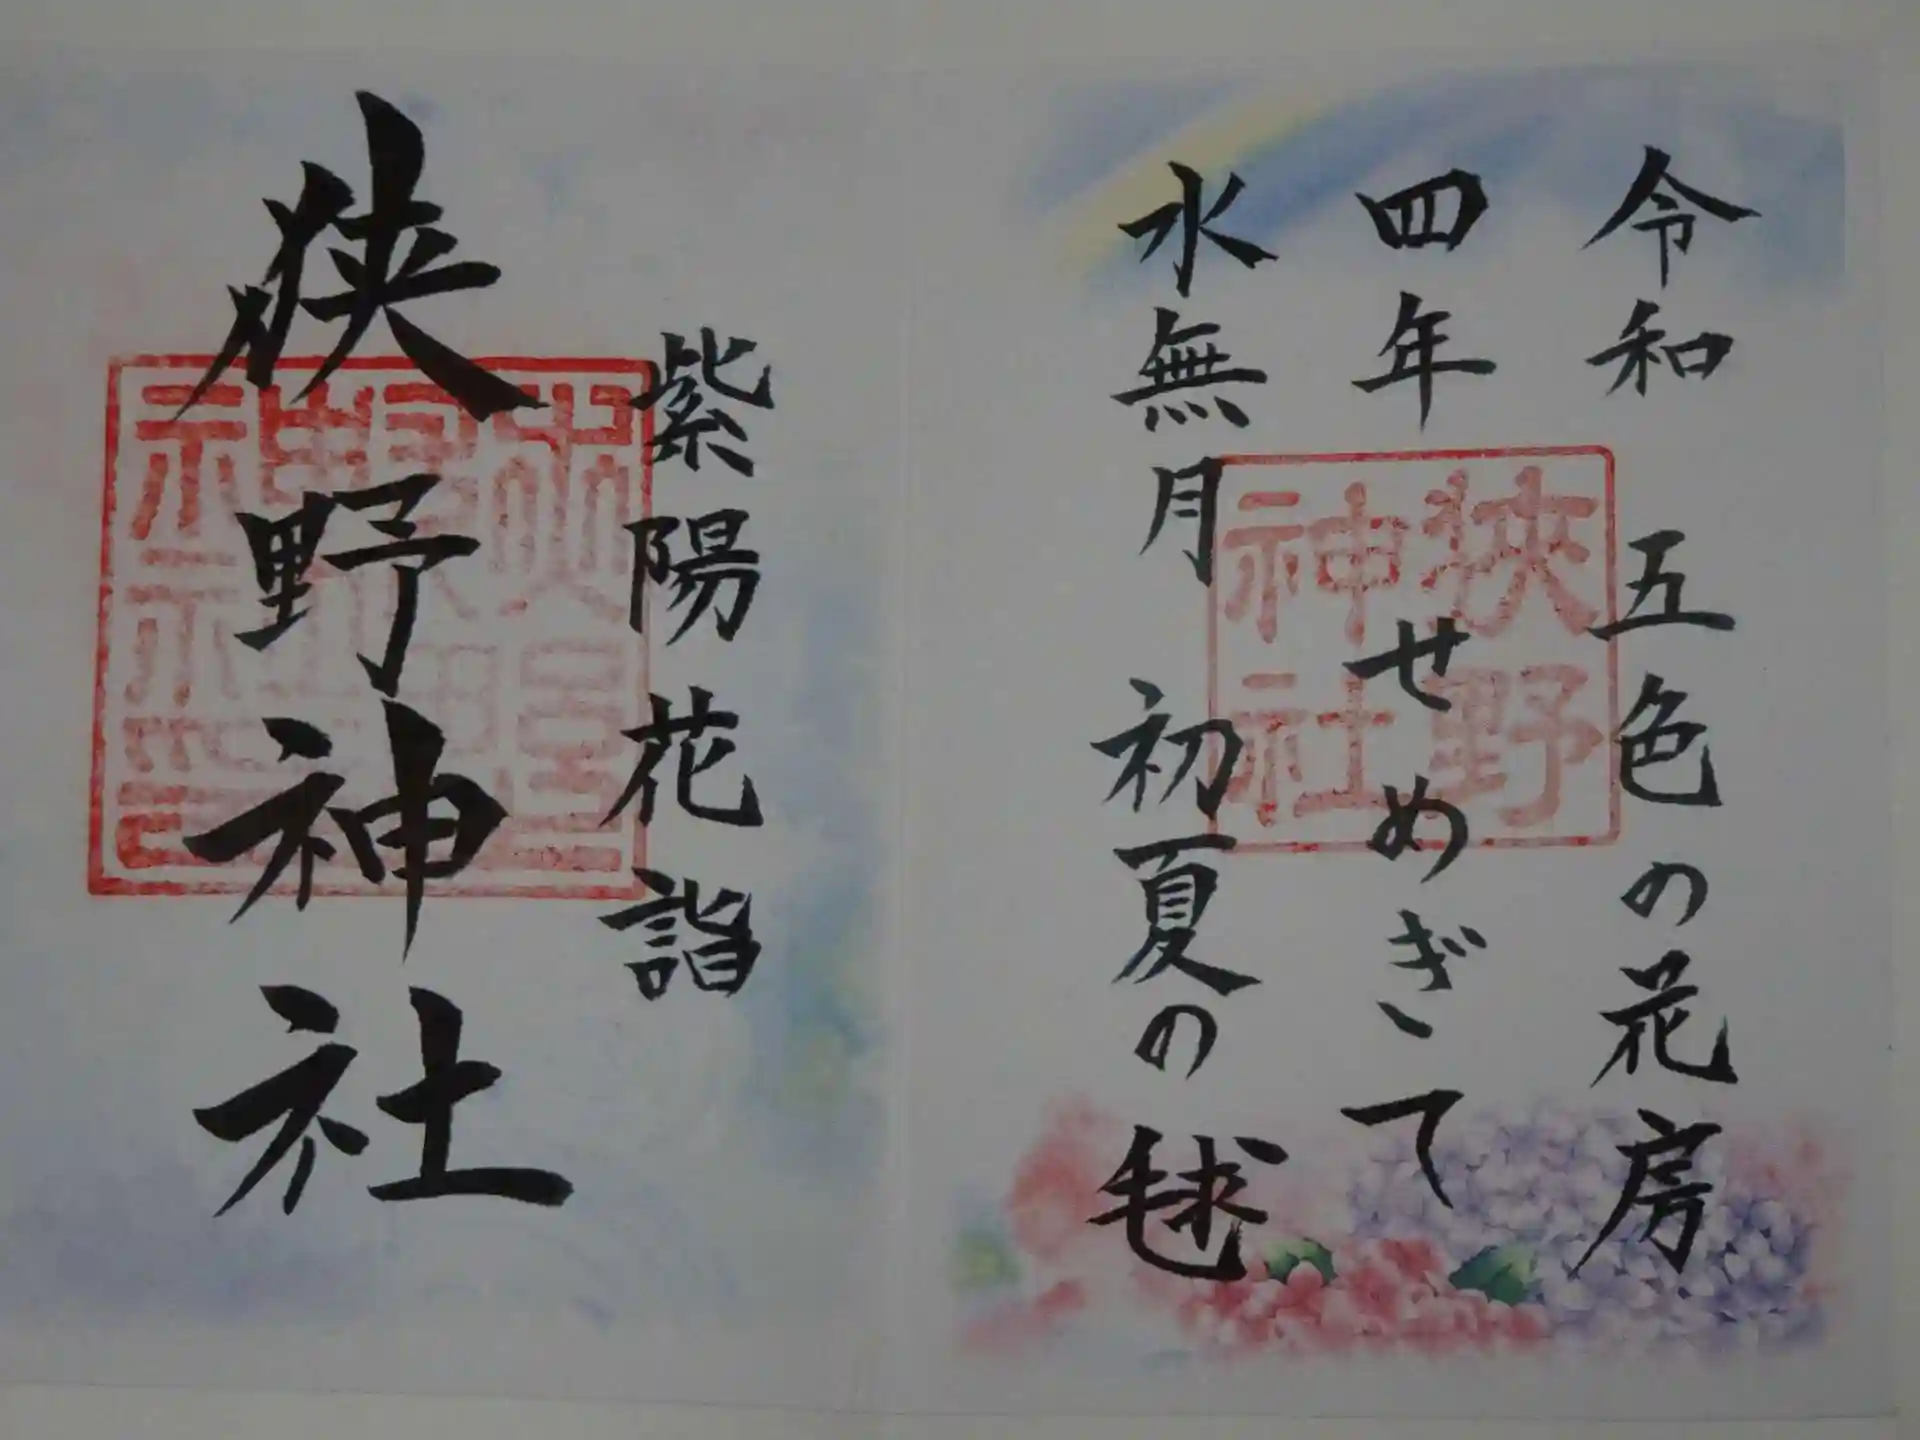 令和 五色の花房
四年 せめぎて
水無月 初夏の毬
狭野
神社
紫陽花詣
狭野神社